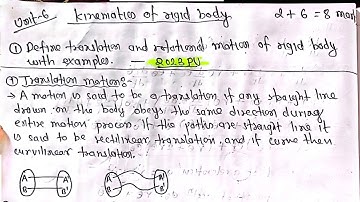 Unit-6 Kinematics of rigid body. 2+6=8 mark
① Define translation and rotational motion of rigid body
with examples. — 2023 PU
① Translation motion:-
→ A motion is said to be a translation, if any straight line
drawn on the body obeys the same direction during
entire motion process. If the paths are straight line it
is said to be rectilinear translation, and if curve then
curvilinear translation.
A A'
B B'
A A'
B B'